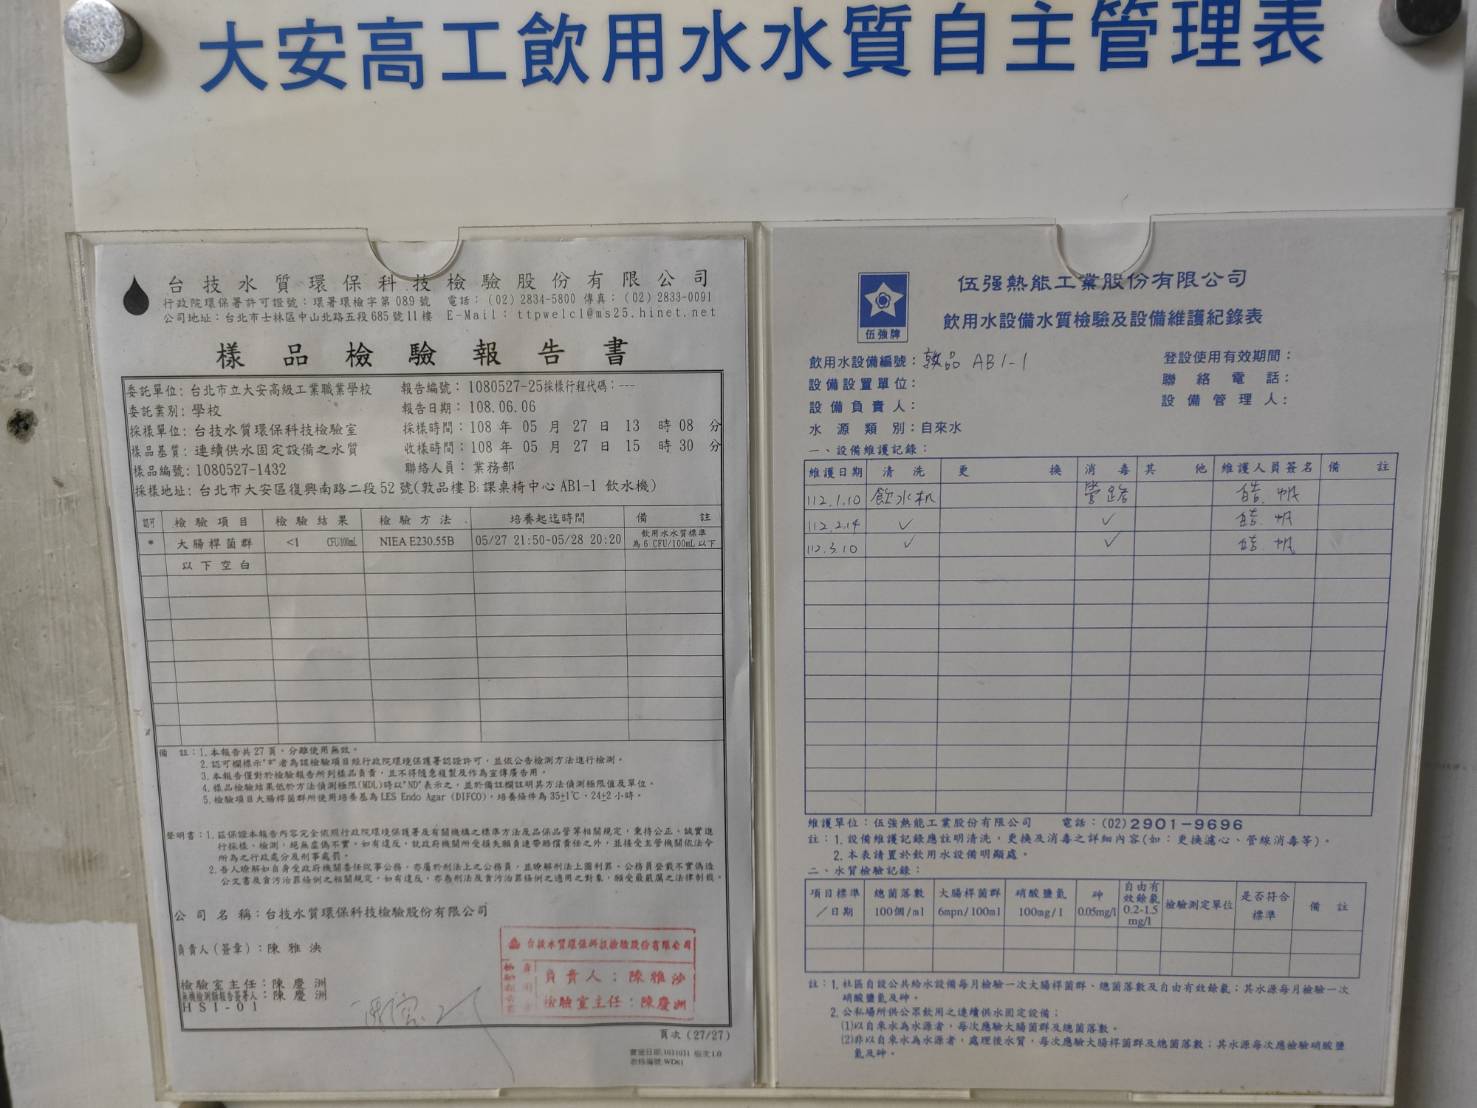 大安高工飲用水水質自主管理表
台技水質環保科技檢驗股份有限公司
行政院環保署許可證號：環署環檢字第089號 電話：(02)2834-5800 傳真：(02)2833-0091
公司地址：台北市士林區中山北路五段685號11樓 E-Mail：ttpwelcl@ms25.hinet.net
樣品檢驗報告書
委託單位：台北市立大安高級工業職業學校 報告編號：1080527-25採樣行程代碼：---
委託業別：學校 報告日期：108.06.06
採樣單位：台技水質環保科技檢驗室 採樣時間：108 年 05 月 27 日 13 時 08 分
樣品基質：連續供水固定設備之水質 收樣時間：108 年 05 月 27 日 15 時 30 分
樣品編號：1080527-1432 聯絡人員：業務部
採樣地址：台北市大安區復興南路二段52號(敦品樓B:課桌椅中心AB1-1 飲水機)
認可 檢驗項目 檢驗結果 檢驗方法 培養起迄時間 備註
* 大腸桿菌群 <1 CFU/100mL NIEA E230.55B 05/27 21:50~05/28 20:20 飲用水水質標準
為 6 CFU/100mL 以下
以下空白
備註：1.本報告共27頁，分離使用無效。
2.認可欄標示"*"者為該檢驗項目經行政院環境保護署認證許可，並依公告檢測方法進行檢測。
3.本報告僅對於檢驗報告所列樣品負責，且不得隨意複製及作為宣傳廣告用。
4.樣品檢驗結果低於方法偵測極限(MDL)時以"ND"表示之，並於備註欄註明其方法偵測極限值及單位。
5.檢驗項目大腸桿菌群所使用培養基為LES Endo Agar (DIFCO)，培養條件為35±1℃，24±2小時。
聲明書：1.茲保證本報告內容完全依照行政院環境保護署及有關機構之標準方法及品保品管等相關規定，秉持公正、誠實進
行採樣、檢測，絕無虛偽不實，如有違反，就政府機關所受損失願負連帶賠償責任之外，並接受主管機關依法令
所為之行政處分及刑事處罰。
2.吾人瞭解如自身受政府機關委任從事公務，亦屬於刑法上之公務員，並瞭解刑法上圖利罪、公務員登載不實偽造
公文書及貪污治罪條例之相關規定，如有違反，亦為刑法及貪污治罪條例之適用之對象，願受最嚴厲之法律制裁。
公司名稱：台技水質環保科技檢驗股份有限公司
負責人(簽章)：陳雅泱
檢驗室主任：陳慶洲
無機檢測類報告簽署人：陳慶洲
HSI-01
台技水質環保科技檢驗股份有限公司
負責人：陳雅泱
檢驗室主任：陳慶洲
頁次(27/27)
伍強牌
伍强熱能工業股份有限公司
飲用水設備水質檢驗及設備維護紀錄表
飲用水設備編號：敦品 AB1-1 登設使用有效期間：
設備設置單位： 聯絡電話：
設備負責人： 設備管理人：
水源類別：自來水
一、設備維護記錄：
維護日期 清洗 更換 消毒 其他 維護人員簽名 備註
112.1.10 飲水机 管路
112.2.14 ✓ ✓
112.3.10 ✓ ✓
維護單位：伍強熱能工業股份有限公司 電話：(02)2901-9696
註：1.設備維護記錄應註明清洗、更換及消毒之詳細內容(如：更換濾心、管線消毒等)。
2.本表請置於飲用水設備明顯處。
二、水質檢驗記錄：
項目標準／日期 總菌落數 100個/ml 大腸桿菌群 6mpn/100ml 硝酸鹽氮 100mg/l 砷 0.05mg/l 自由有效餘氯 0.2-1.5 mg/l 檢驗測定單位 是否符合標準 備註
註：1.社區自設公共給水設備每月檢驗一次大腸桿菌群、總菌落數及自由有效餘氯；其水源每月檢驗一次
硝酸鹽氮及砷。
2.公私場所供公眾飲用之連續供水固定設備：
(1)以自來水為水源者，每次應驗大腸桿菌群及總菌落數。
(2)非以自來水為水源者，處理後水質，每次應驗大腸桿菌群及總菌落數；其水源每次應檢驗硝酸鹽
氮及砷。